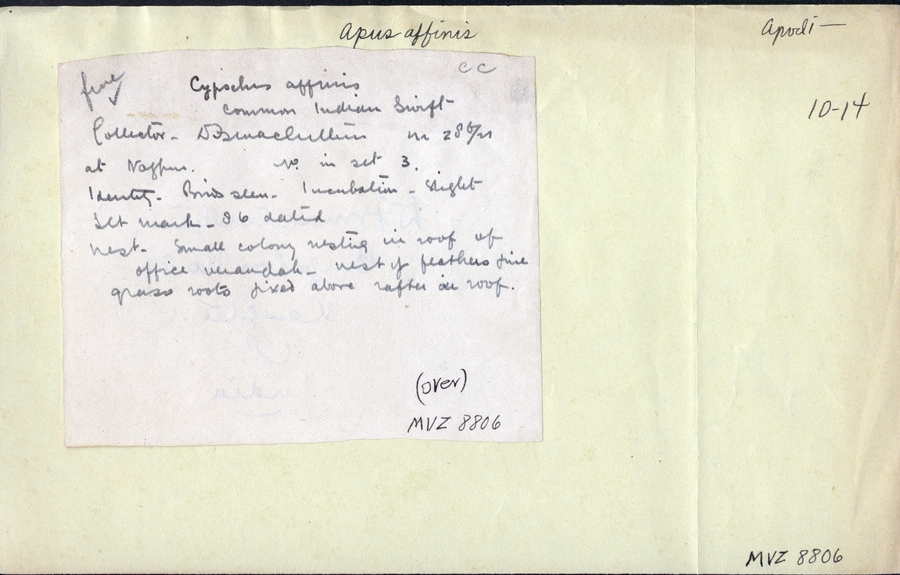 Apus affinis
Apodi—
10-14
fine
cc
Cypselus affinis
Common Indian Swift
Collector - on
at Nagpur. No. in set 3.
Identity - Birds seen. Incubation - slight
Set mark - 86 dated
Nest - Small colony nesting in roof of
office verandah - nest of feathers fine
grass roots fixed above rafter in roof.
(over)
MVZ 8806
MVZ 8806